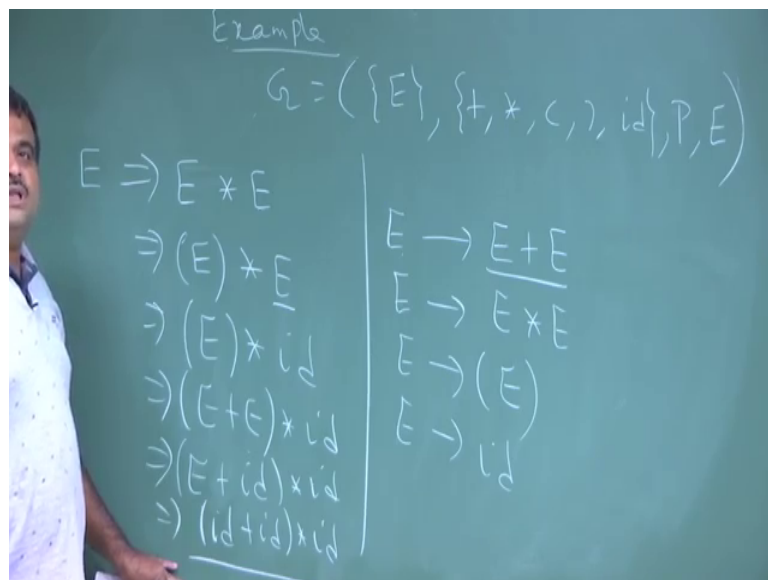 Example
G = ({E}, {+, *, (, ), id}, P, E)
E ⇒ E * E
⇒ (E) * E
⇒ (E) * id
⇒ (E + E) * id
⇒ (E + id) * id
⇒ (id + id) * id
E → E + E
E → E * E
E → (E)
E → id